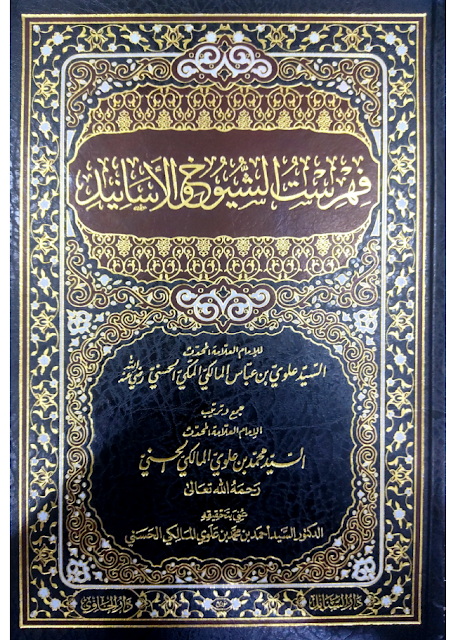 فهرست الشيوخ والأسانيد
للإمام العلامة المحدث
السيد علوي بن عباس المالكي المكي الحسني رضي الله عنه
جمع وترتيب
الإمام العلامة المحدث
السيد محمد بن علوي المالكي الحسني
رحمه الله تعالى
عني بتحقيقه
الدكتور السيد أحمد بن محمد بن علوي المالكي الحسني
دار السنابل
دار الحاوي